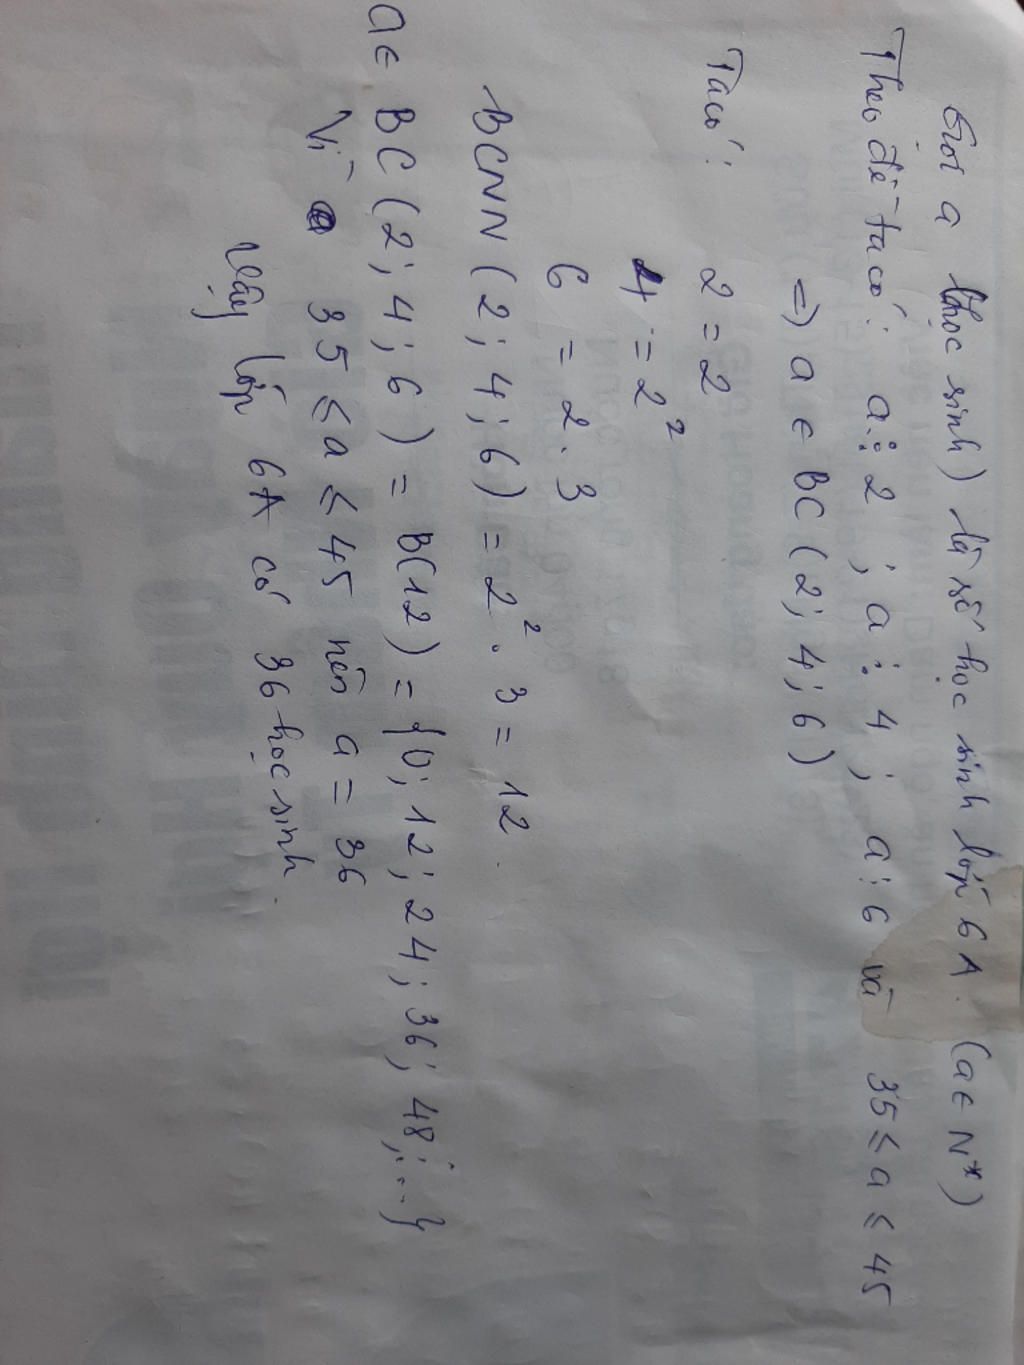 Gọi a (học sinh) là số học sinh lớp 6A. (a∈ N*)
Theo đề ta có: a⋮2 ; a⋮4 ; a⋮6 và 35 ≤ a ≤ 45
=) a ∈ BC (2; 4; 6)
Ta có: 2 = 2
4 = 2²
6 = 2.3
BCNN (2; 4; 6) = 2². 3 = 12.
a∈ BC (2; 4; 6) = B(12) = {0; 12; 24; 36; 48;...}
Vì 35 ≤ a ≤ 45 nên a = 36
Vậy lớp 6A có 36 học sinh.